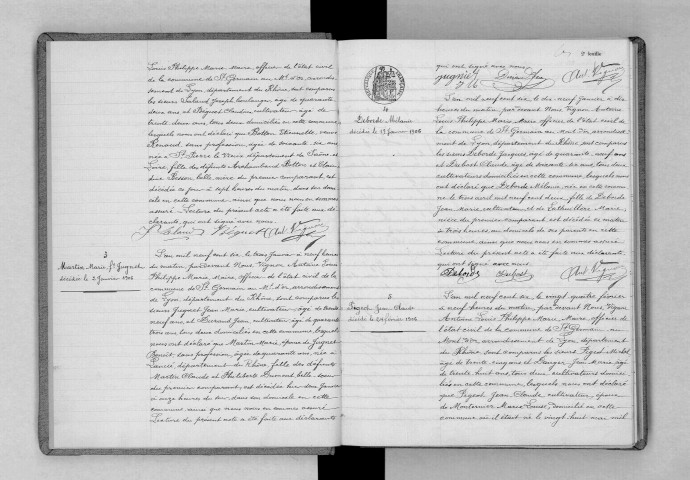 Louis Philippe Marie Maire, officier de l'état civil
de la commune de St Germain au Mt d'or, arrondis-
sement de Lyon, département du Rhône, sont comparus
les sieurs Joseph boulanger, âgé de quarante
deux ans et Claudius cultivateur âgé de
trente deux ans, tous deux domiciliés en cette commune,
lesquels nous ont déclaré que Etiennette, veuve
Renard, sans profession, âgée de soixante six ans
née à St Pierre le Vieux département de Saône et
Loire, fille des défunts et
belle mère du premier comparant, est
décédée ce jour à sept heures du matin dans son domi-
cile en cette commune, ainsi que nous nous en sommes
assuré. Lecture du présent acte a été faite aux dé-
clarants, qui ont signé avec nous.
3
Martin Marie Fe Juguet
décédée le 2 Janvier 1906
L'an mil neuf cent six, le trois Janvier à neuf heures
du matin, par devant Nous, Vignon, Antoine Louis
Philippe Marie, Maire, officier de l'état civil de la
commune de St Germain au Mt d'or arrondissement
de Lyon, département du Rhône, sont comparus les
sieurs Juguet Jean Marie, cultivateur, âgé de
neuf ans, et Durand Jean, cultivateur, âgé de quarante
trois ans tous deux domiciliés en cette commune, lesquels
nous ont déclaré que Martin Marie, épouse de Juguet
Benoît, sans profession, âgée de quarante ans, née à
département du Rhône, fille des défunts
Martin Claude et Philiberte belle sœur
du premier comparant, est décédée hier deux Janvier
à onze heures du soir, dans son domicile en cette
commune, ainsi que nous nous en sommes assuré
Lecture du présent acte a été faite aux déclarants
2e feuille
qui ont signé avec nous.
4
Deborde Mélanie
décédée le 17 Janvier 1906
L'an mil neuf cent six le dix neuf Janvier à dix
heures du matin, par devant Nous, Vignon Antoine
Louis Philippe Marie, Maire, officier de l'état civil de
la commune de St Germain au Mont d'or, arrondissement
de Lyon, département du Rhône, sont comparus
les sieurs Deborde Jacques, âgé de quarante neuf ans
et Dubost Claude, âgé de soixante six ans, tous deux
cultivateurs domiciliés en cette commune, lesquels nous
ont déclaré que Deborde Mélanie, née en cette commune
le trois avril mil neuf cent deux, fille de Deborde
Jean Marie, cultivateur, et de Marie,
nièce du premier comparant est décédée ce matin
à trois heures, au domicile de ses parents en cette
commune, ainsi que nous nous en sommes assuré
Lecture du présent acte a été faite aux déclarants,
qui ont signé avec nous.
Deborde Dubost
5
Jean Claude
décédé le 24 février 1906
L'an mil neuf cent six, le vingt quatre février
à neuf heures du matin, par devant Nous, Vignon
Antoine Louis Philippe Marie, Maire, officier de
l'état civil de la commune de St Germain au
Mont d'or, arrondissement de Lyon, département
du Rhône, sont comparus les sieurs Michel
âgé de trente cinq ans et Jean Marie, âgé
de trente huit ans, tous deux cultivateurs domici-
liés en cette commune, lesquels nous ont déclaré
que Jean Claude, cultivateur, époux
de Marie Louise, domicilié en cette
commune où il était né le vingt huit mai mil